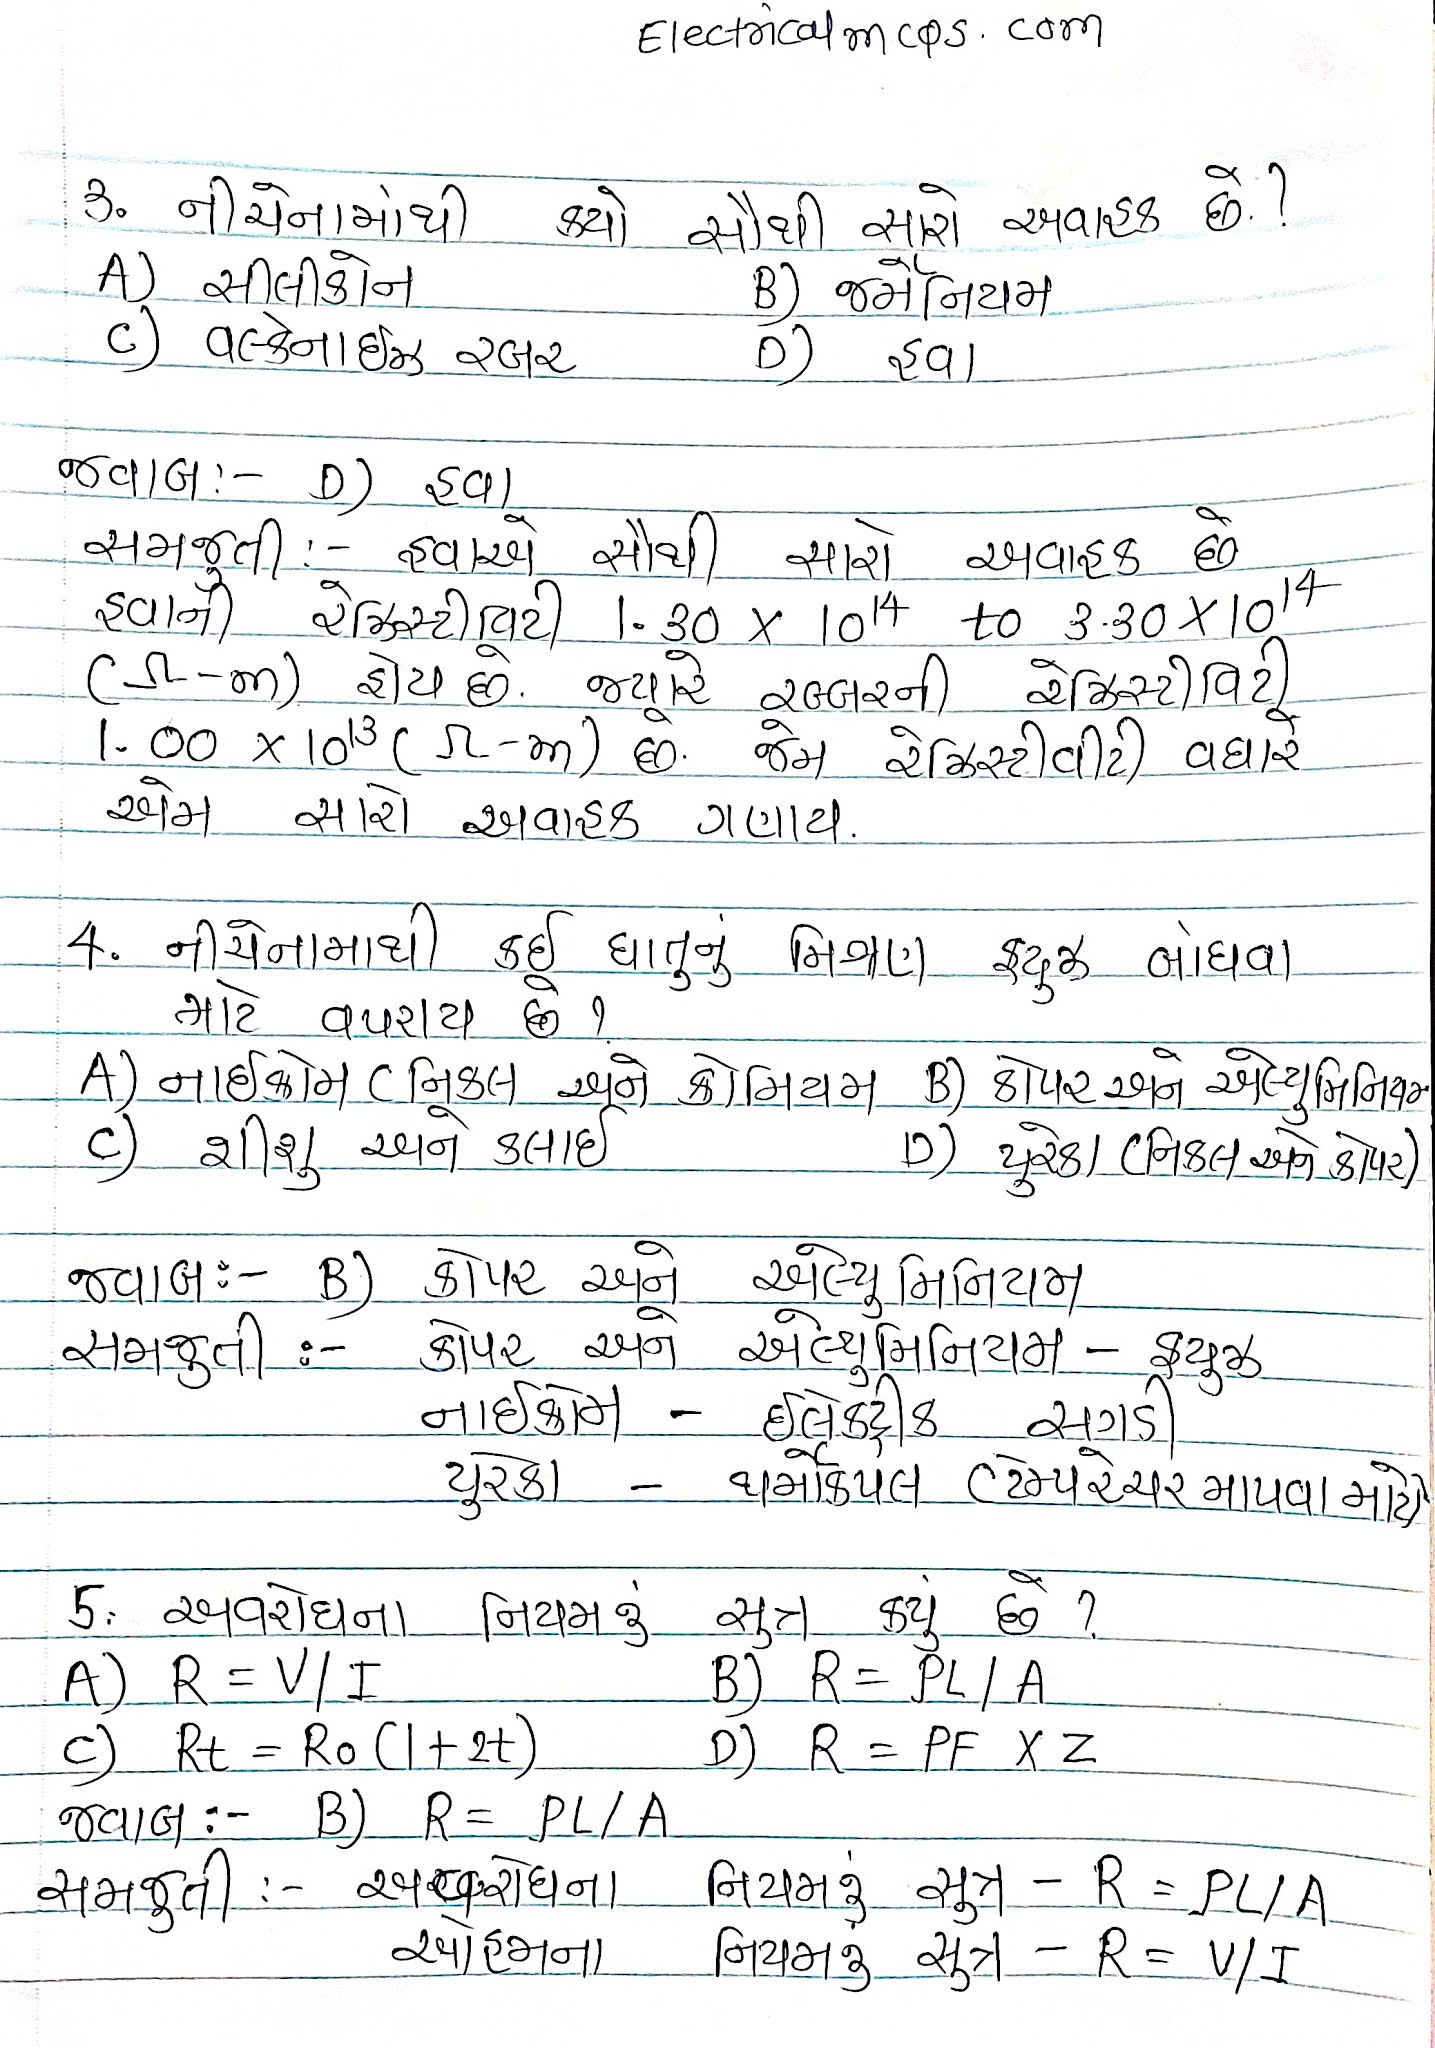 Electricalmcqs.com
3. નીચેનામાંથી કયો સૌથી સારો અવાહક છે.?
A) સીલીકોન B) જર્મેનિયમ
C) વલ્કેનાઈઝ રબર D) હવા
જવાબ:- D) હવા
સમજુતી:- હવાએ સૌથી સારો અવાહક છે
હવાની રેઝિસ્ટીવિટી 1.30 X 10¹⁴ to 3.30 X 10¹⁴
(Ω-m) હોય છે. જ્યારે રબ્બરની રેઝિસ્ટીવિટી
1.00 X 10¹³ (Ω-m) છે. જેમ રેઝિસ્ટીવીટી વધારે
એમ સારો અવાહક ગણાય.
4. નીચેનામાથી કઈ ધાતુનું મિશ્રણ ફ્યુઝ બાંધવા
માટે વપરાય છે?
A) નાઈક્રોમ (નિકલ અને ક્રોમિયમ B) કોપર અને એલ્યુમિનિયમ
C) શીશુ અને કલાઈ D) યુરેકા (નિકલ અને કોપર)
જવાબ:- B) કોપર અને એલ્યુમિનિયમ
સમજુતી:- કોપર અને એલ્યુમિનિયમ - ફ્યુઝ
નાઈક્રોમ - ઈલેક્ટ્રીક સગડી
યુરેકા - થર્મોકપલ (ટેમ્પરેચર માપવા માટે)
5. અવરોધના નિયમનું સુત્ર કયું છે?
A) R = V/I B) R = PL/A
C) Rt = Ro(1+2t) D) R = PF X Z
જવાબ:- B) R = PL/A
સમજુતી:- અવરોધના નિયમનું સુત્ર - R = PL/A
ઓહમના નિયમનું સુત્ર - R = V/I